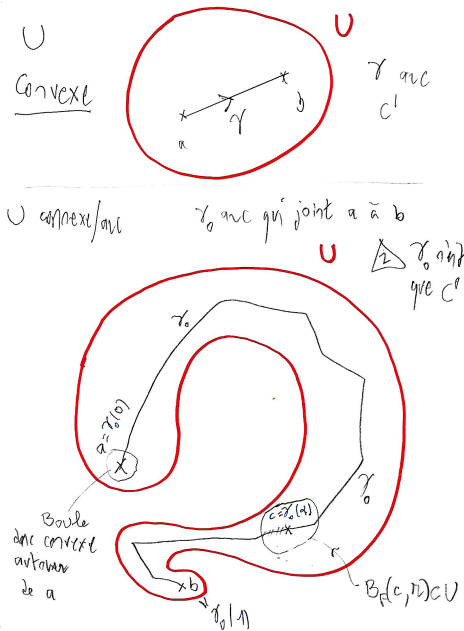 U
U
Convexe
γ arc
C¹
a
γ
b
U connexe/arc
γ₀ arc qui joint a à b
U
γ₀ n'est
que C⁰
γ₀
a = γ₀(0)
γ₀
c = γ₀(α)
Boule
donc convexe
autour
de a
b
γ₀(1)
B_F(c, r) ⊂ U